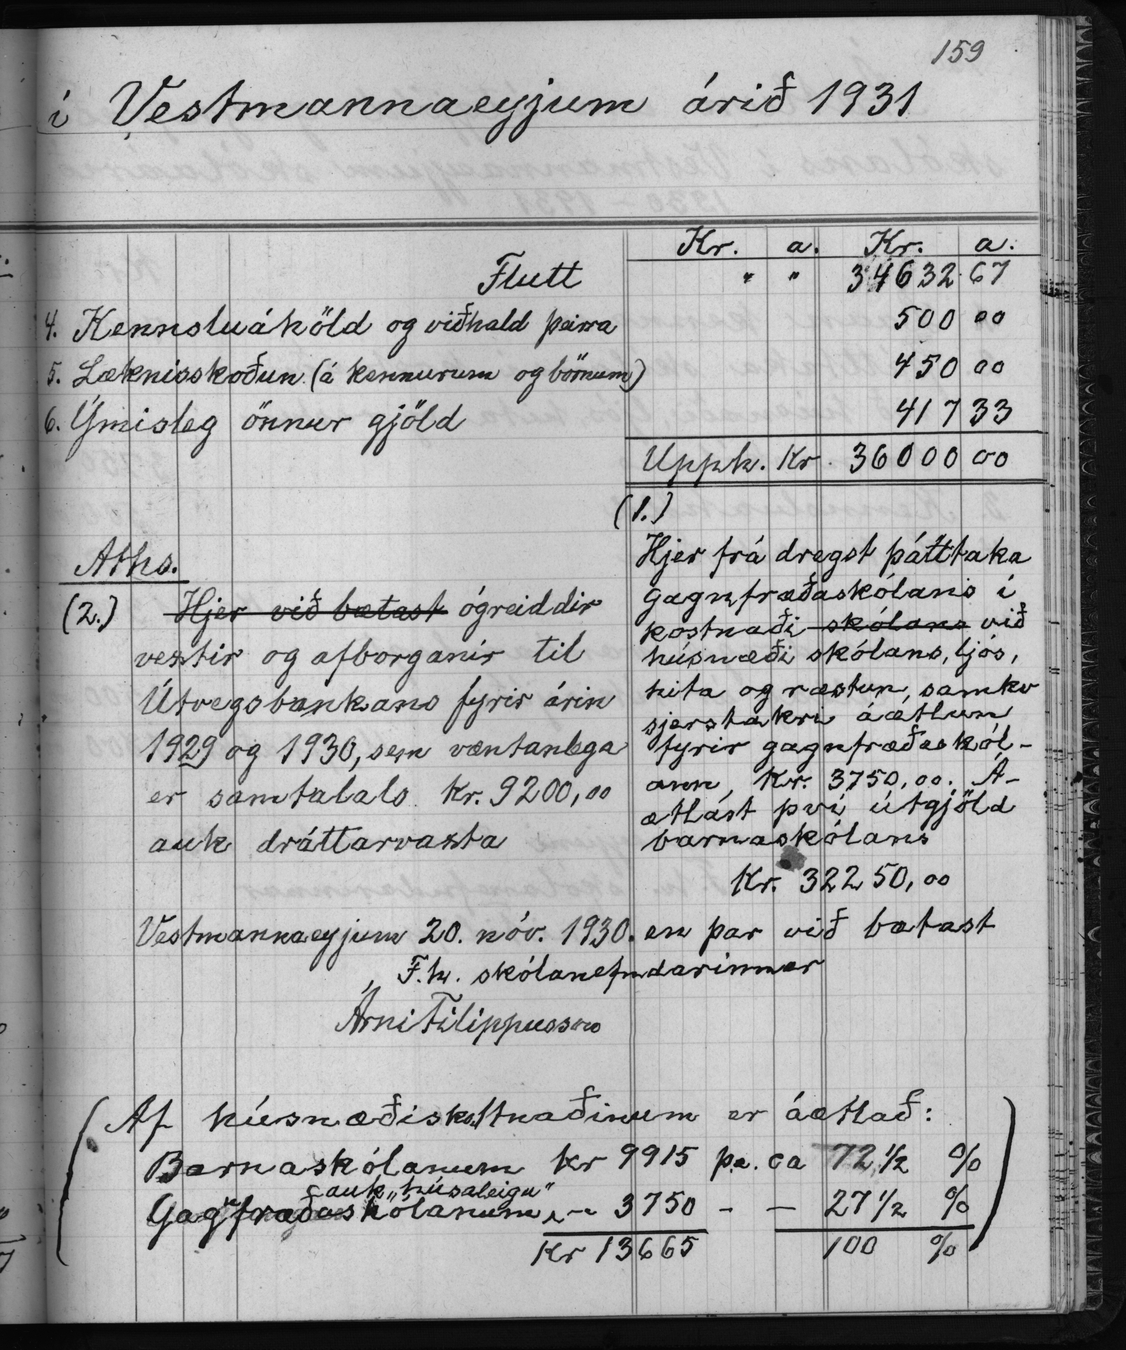 159
í Vestmannaeyjum árið 1931
Kr. a. Kr. a.
Flutt " " 34632 67
4. Kennsluáhöld og viðhald þeirra 500 00
5. Læknisskoðun (á kennurum og börnum) 450 00
6. Ýmisleg önnur gjöld 417 33
Upph. Kr. 36000 00
(1.)
Hjer frá dregst þátttaka
gagnfræðaskólans í
kostnaði skólans við
húsnæði skólans, ljós,
hita og ræstun, samkv
sjerstakri áætlun
fyrir gagnfræðaskól-
ann, Kr. 3750,00. Á-
ætlast því útgjöld
barnaskólans
Kr. 32250,00
en þar við bætast
Aths.
(2.) Hjer við bætast ógreiddir
vextir og afborganir til
Útvegsbankans fyrir árin
1929 og 1930, sem væntanlega
er samtalals kr. 9200,00
auk dráttarvaxta
Vestmannaeyjum 20. nóv. 1930.
F.h. skólanefndarinnar
Árni Filippusson
(Af húsnæðiskostnaðinum er áætlað:
Barnaskólanum kr 9915 þa. ca 72 1/2 %
auk "húsaleigu"
Gagnfræðaskólanum, – 3750 - – 27 1/2 %)
Kr 13665 100 %